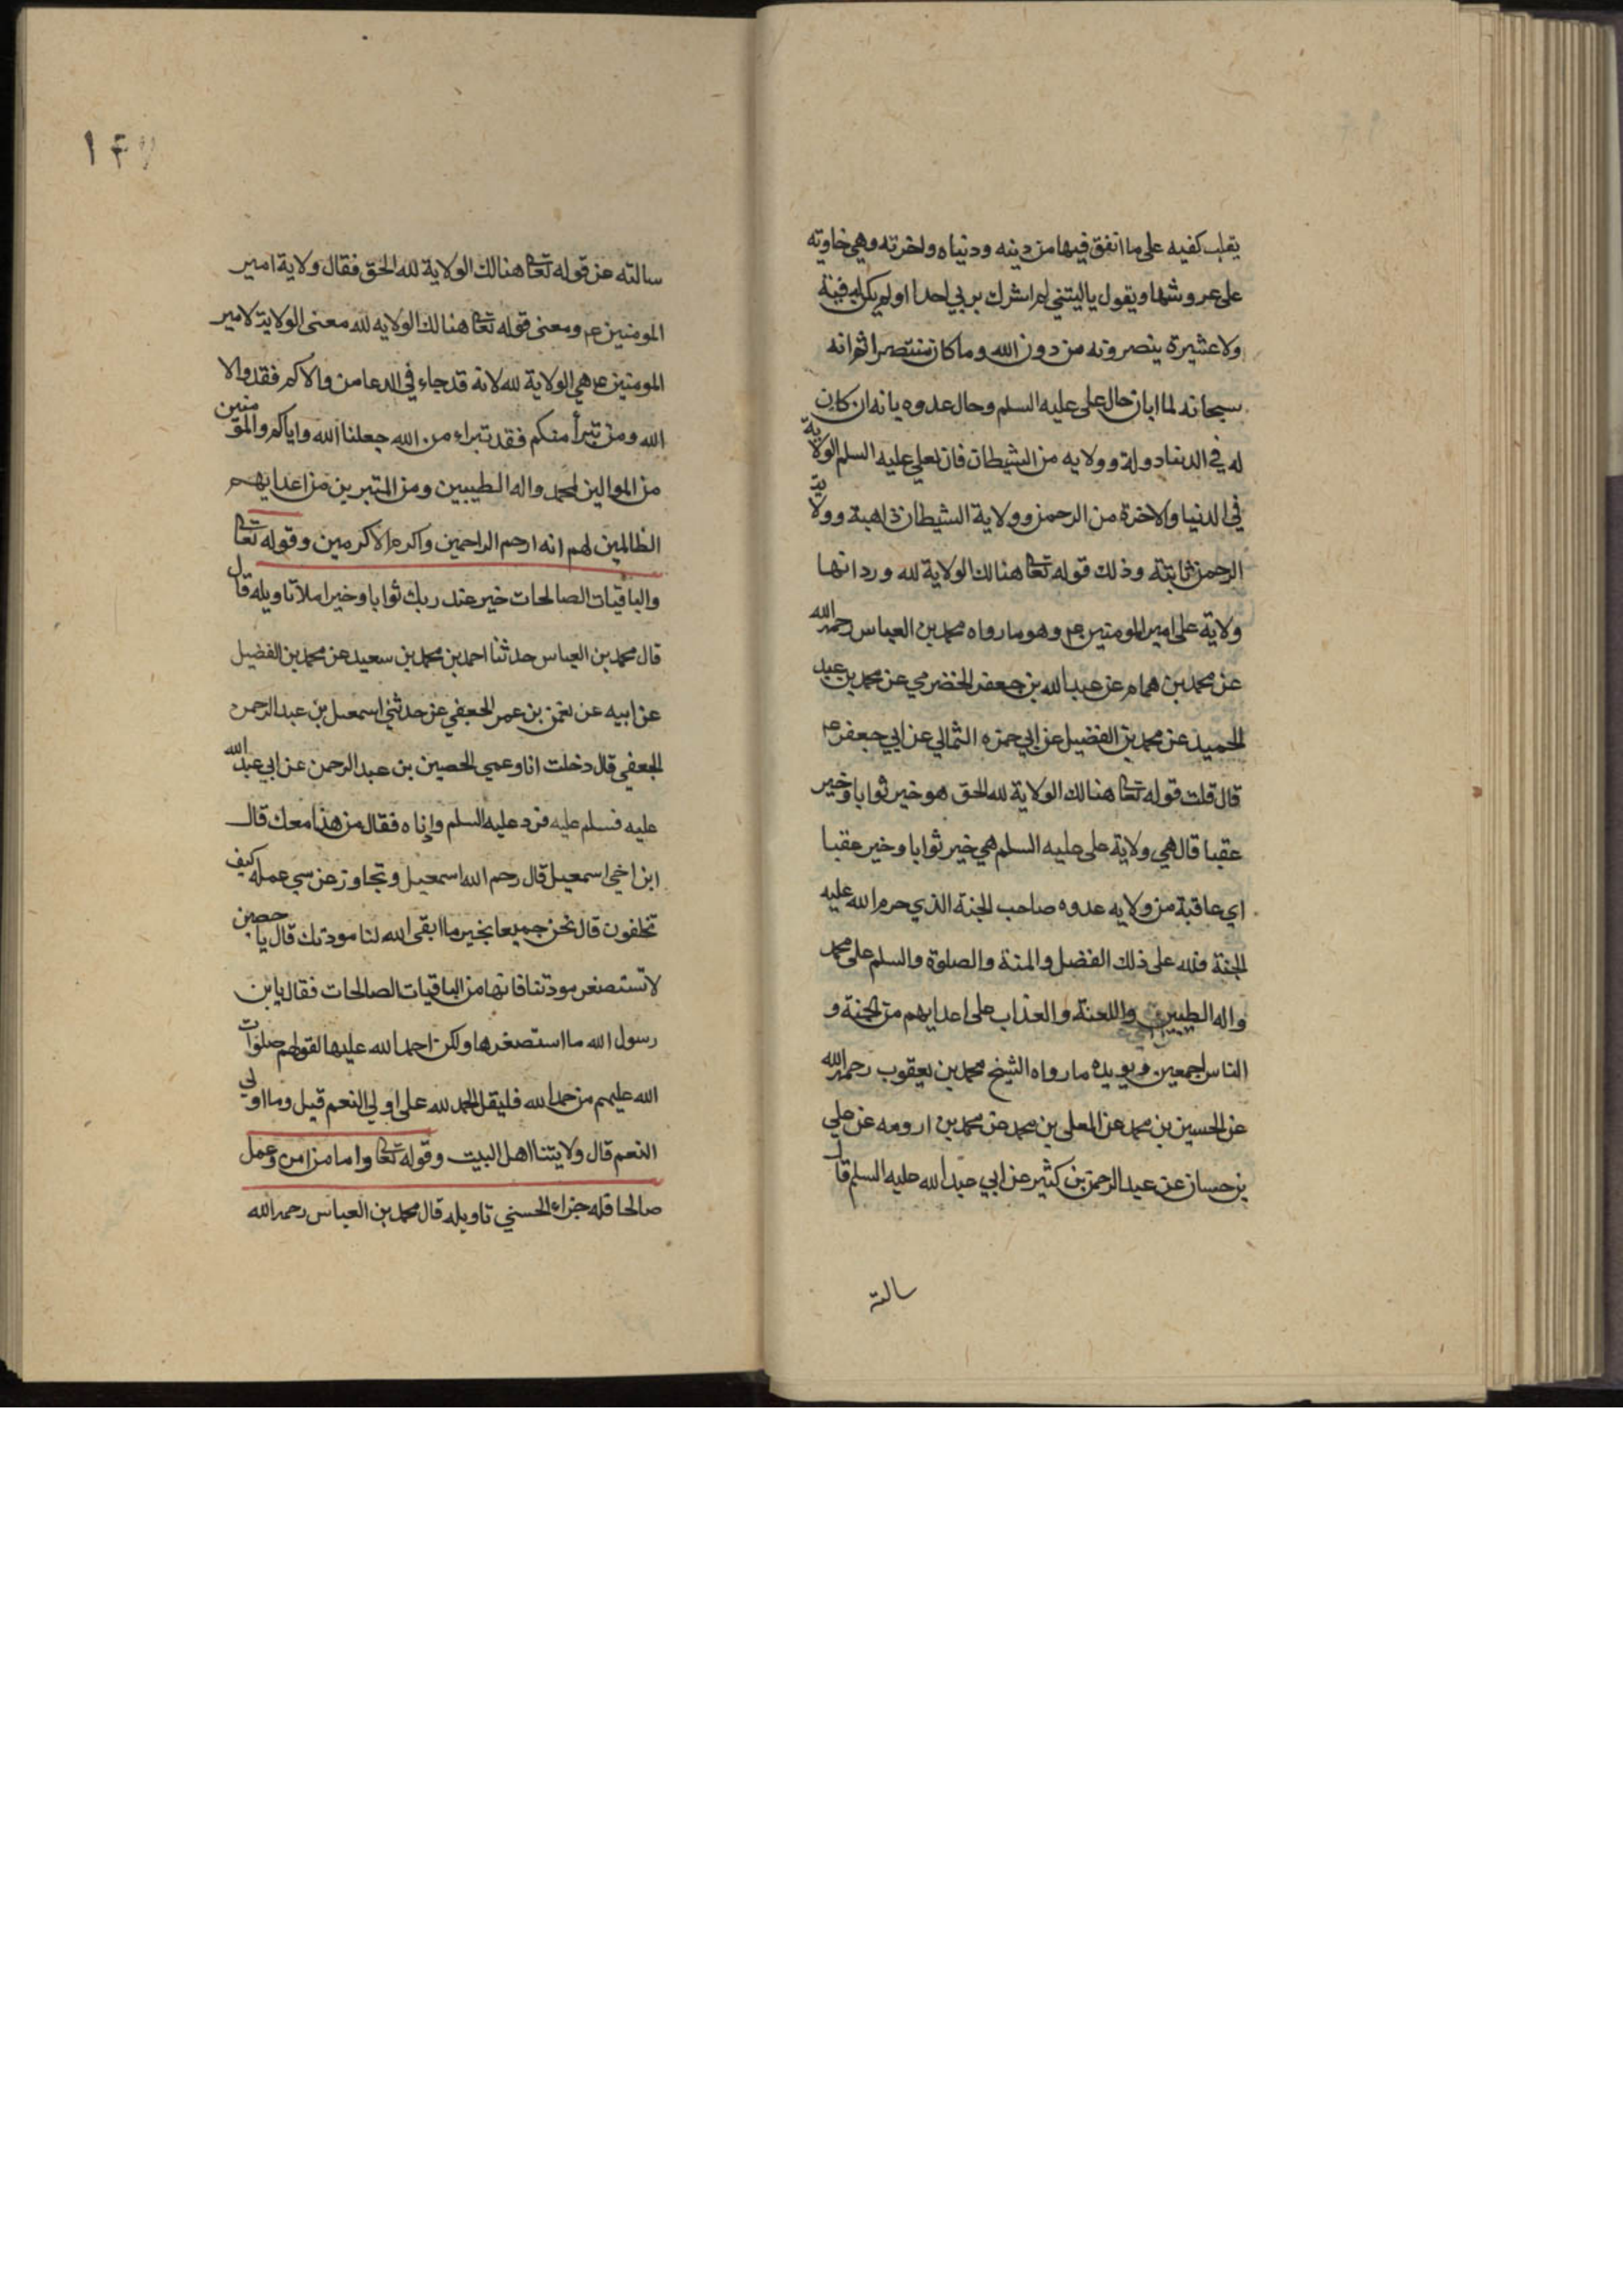 يقلب كفيه على ما انفق فيها من دينه ودنياه واخرته وهي خاوية
على عروشها ويقول ياليتني لم اشرك بربي احدا ولم يكن له فئة
ولا عشيرة ينصرونه من دون الله وما كان منتصرا ثم انه
سبحانه لما ابان حال علي عليه السلم وحال عدوه بانه ان كان
له في الدنيا دولة وولايه من الشيطان فان لعلي عليه السلم الولاية
في الدنيا والاخرة من الرحمن وولاية الشيطان ذاهبة وولاية
الرحمن ثابتة وذلك قوله تعا هنالك الولاية لله ورد انها
ولاية علي امير المومنين ع وهو ما رواه محمد بن العباس رحمه الله
عن محمد بن همام عن عبد الله بن جعفر الحضرمي عن محمد بن عبد
الحميد عن محمد بن الفضيل عن ابي حمزه الثمالي عن ابي جعفر ع
قال قلت قوله تعا هنالك الولاية لله الحق هو خير ثوابا وخير
عقبا قال هي ولاية علي عليه السلم هي خير ثوابا وخير عقبا
اي عاقبة من ولايه عدوه صاحب الجنة الذي حرم الله عليه
الجنة فلله على ذلك الفضل والمنة والصلوة والسلم على محمد
واله الطيبين واللعنة والعذاب على اعدايهم من الجنة و
الناس اجمعين ويويده ما رواه الشيخ محمد بن يعقوب رحمه الله
عن الحسين بن محمد عن المعلى بن محمد عن محمد بن ارومه عن علي
بن حسان عن عبد الرحمن بن كثير عن ابي عبد الله عليه السلم قال
سالته
١٤٧
سالته عن قوله تعا هنالك الولاية لله الحق فقال ولاية امير
المومنين ع ومعنى قوله تعا هنالك الولايه لله معنى الولاية لامير
المومنين ع هي الولاية لله لانه قد جاء في الدعا من والاكم فقد والا
الله ومن تبرأ منكم فقد تبراء من الله جعلنا الله واياكم والمومنين
من الموالين لمحمد واله الطيبين ومن المتبرين من اعدايهم
الظالمين لهم انه ارحم الراحمين واكرم الاكرمين وقوله تعا
والباقيات الصالحات خير عند ربك ثوابا وخير املا تاويله قال
قال محمد بن العباس حدثنا احمد بن محمد بن سعيد عن محمد بن الفضيل
عن ابيه عن نعمن بن عمر الجعفي عن حدثني اسمعيل بن عبد الرحمن
الجعفي قال دخلت انا وعمي الحصين بن عبد الرحمن عن ابي عبد الله
عليه فسلم عليه فرد عليه السلم وإناه فقال من هذا معك قال
ابن اخي اسمعيل قال رحم الله اسمعيل وتجاوز عن سي عمله كيف
تخلفون قال نحن جميعا بخير ما ابقى الله لنا مودتك قال يا حصين
لا تستصغر مودتنا فانها من الباقيات الصالحات فقال يا بن
رسول الله ما استصغرها ولكن احمد الله عليها لقولهم صلوات
الله عليهم من حمد الله فليقل الحمد لله على اولي النعم قيل وما اولي
النعم قال ولايتنا اهل البيت وقوله تعا واما من امن وعمل
صالحا فله جزاء الحسني تاويله قال محمد بن العباس رحمه الله